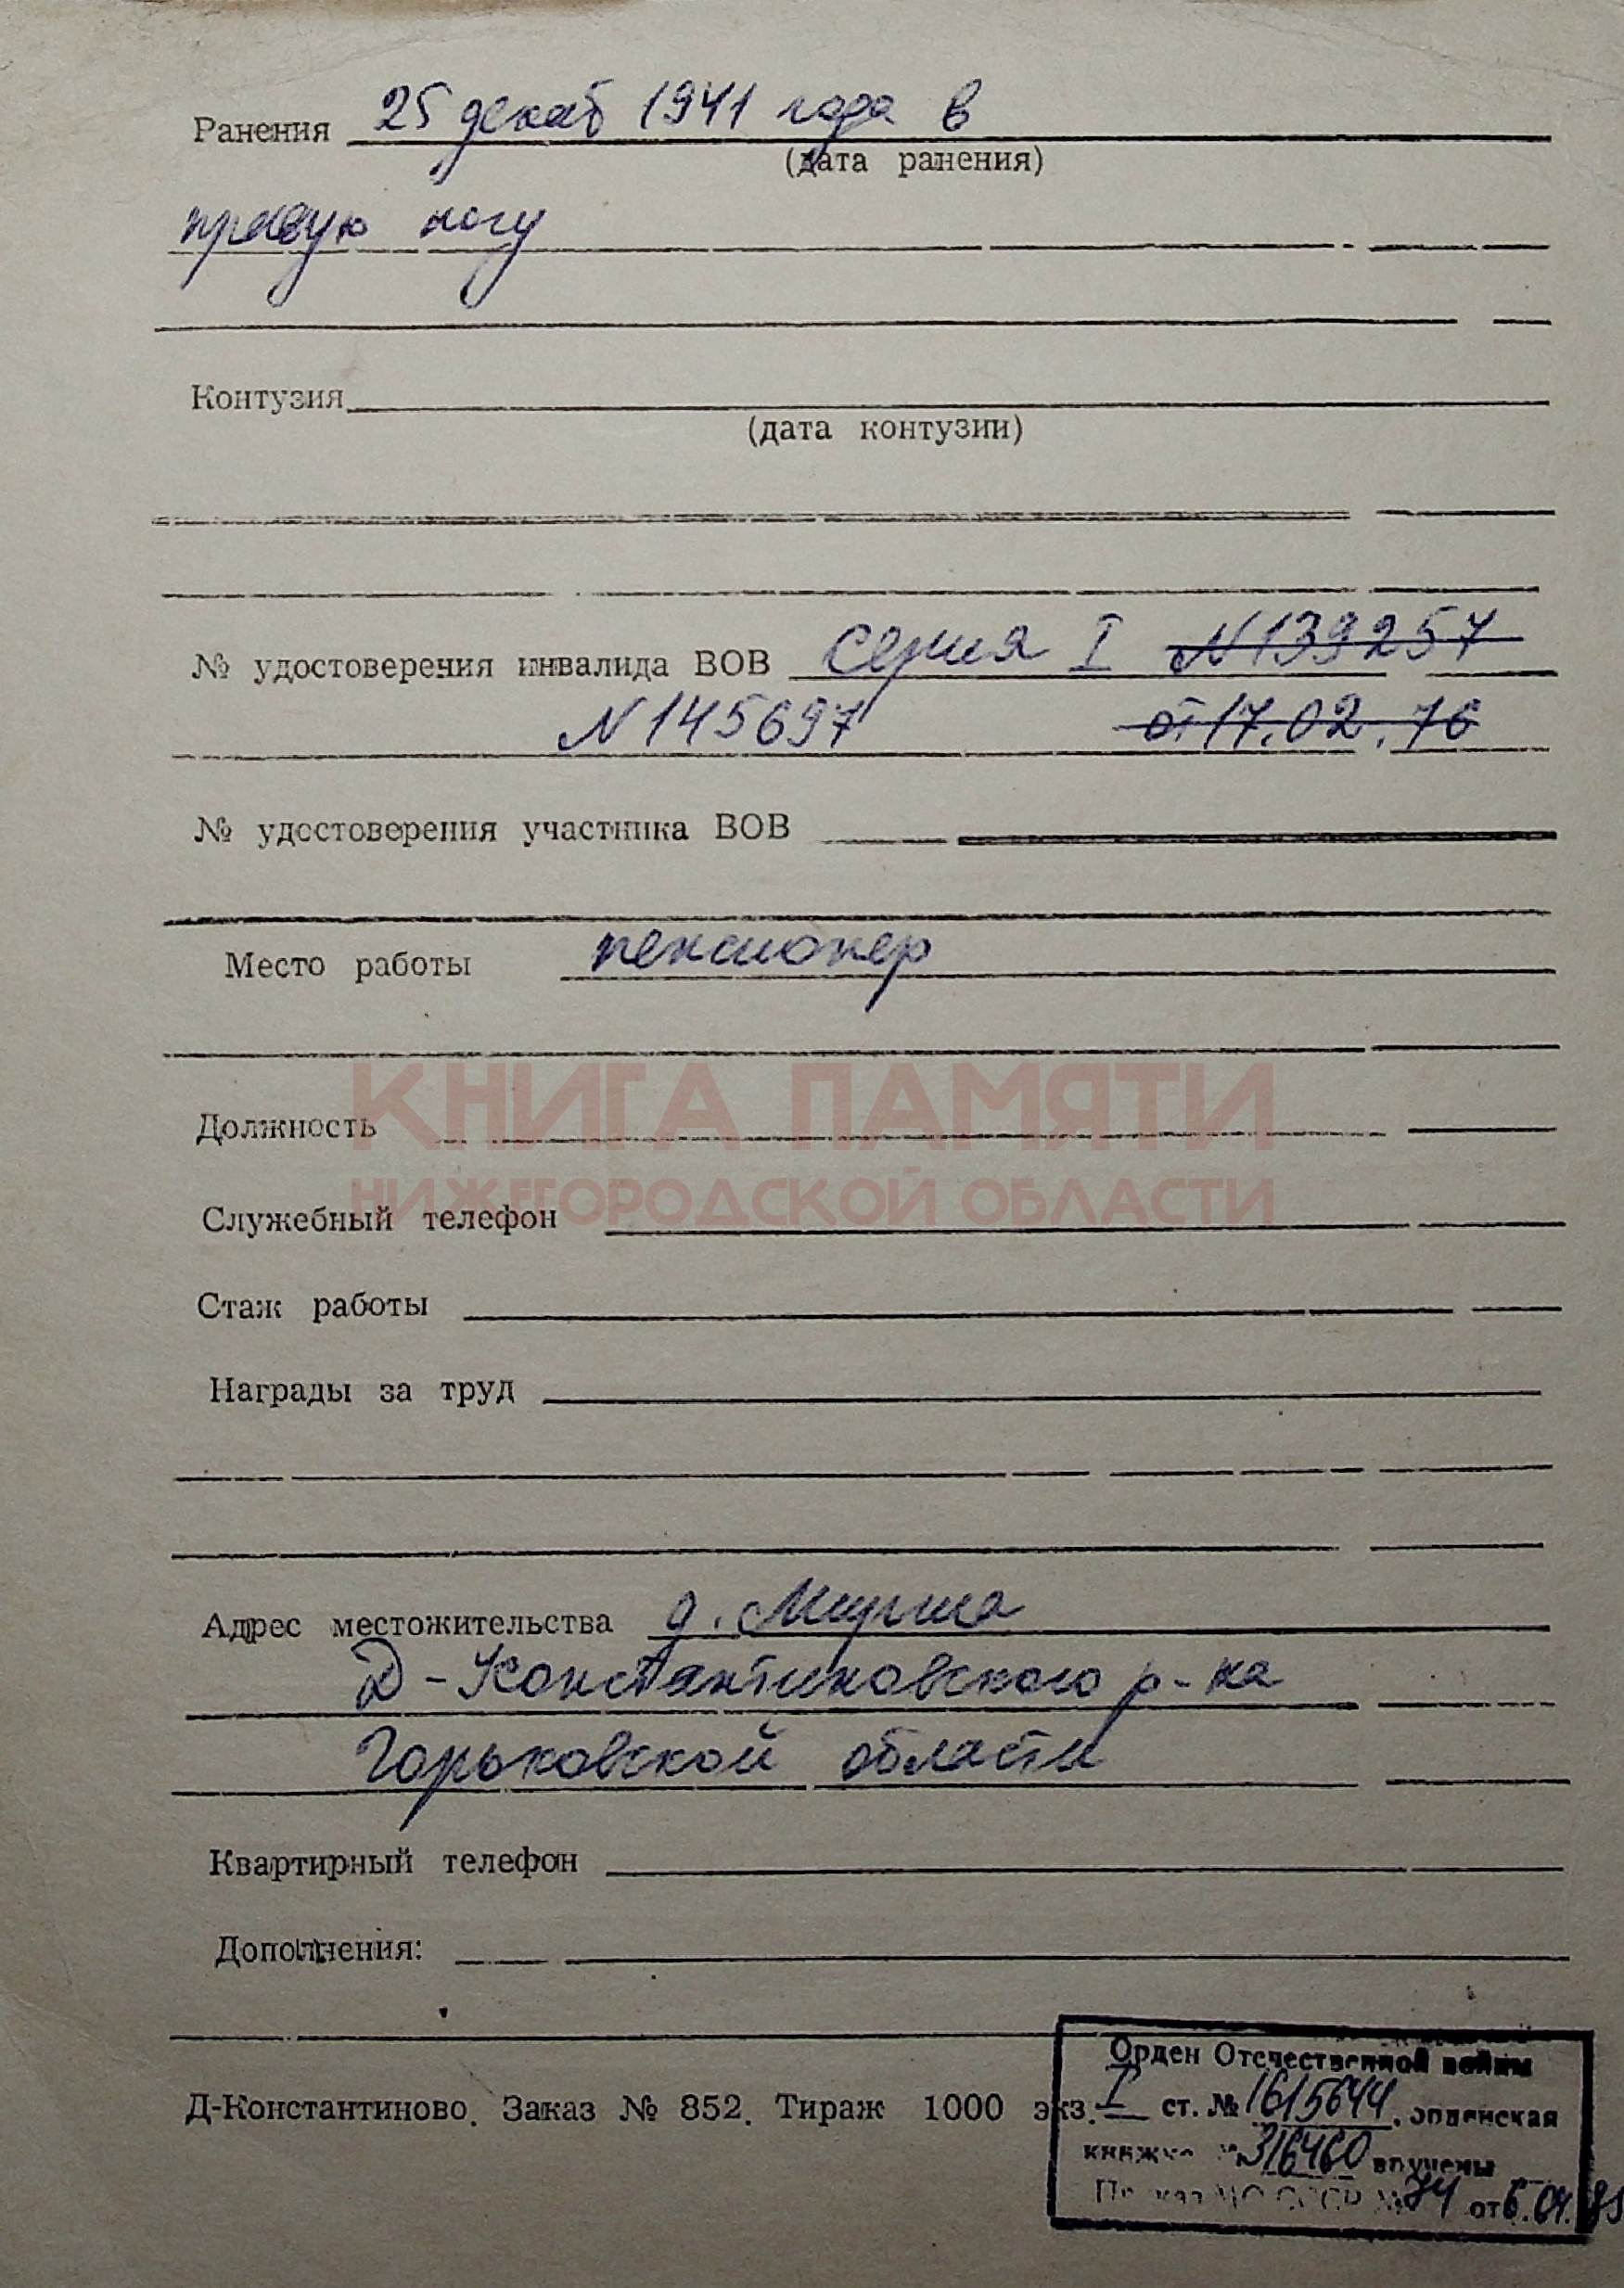 Ранения 25 декаб 1941 года в
(дата ранения)
правую ногу
Контузия
(дата контузии)
№ удостоверения инвалида ВОВ серия I N139257
N145697 от 17.02.76
№ удостоверения участника ВОВ
Место работы пенсионер
КНИГА ПАМЯТИ
Должность
НИЖЕГОРОДСКОЙ ОБЛАСТИ
Служебный телефон
Стаж работы
Награды за труд
Адрес местожительства д.
Д-Константиновского р-ка
Горьковской области
Квартирный телефон
Дополнения:
Орден Отечественной войны
Д-Константиново. Заказ № 852. Тираж 1000 экз.
I ст. № 1615644, орденская
книжка № 316460 вручены
Приказ МО СССР № 74 от 6.04.85